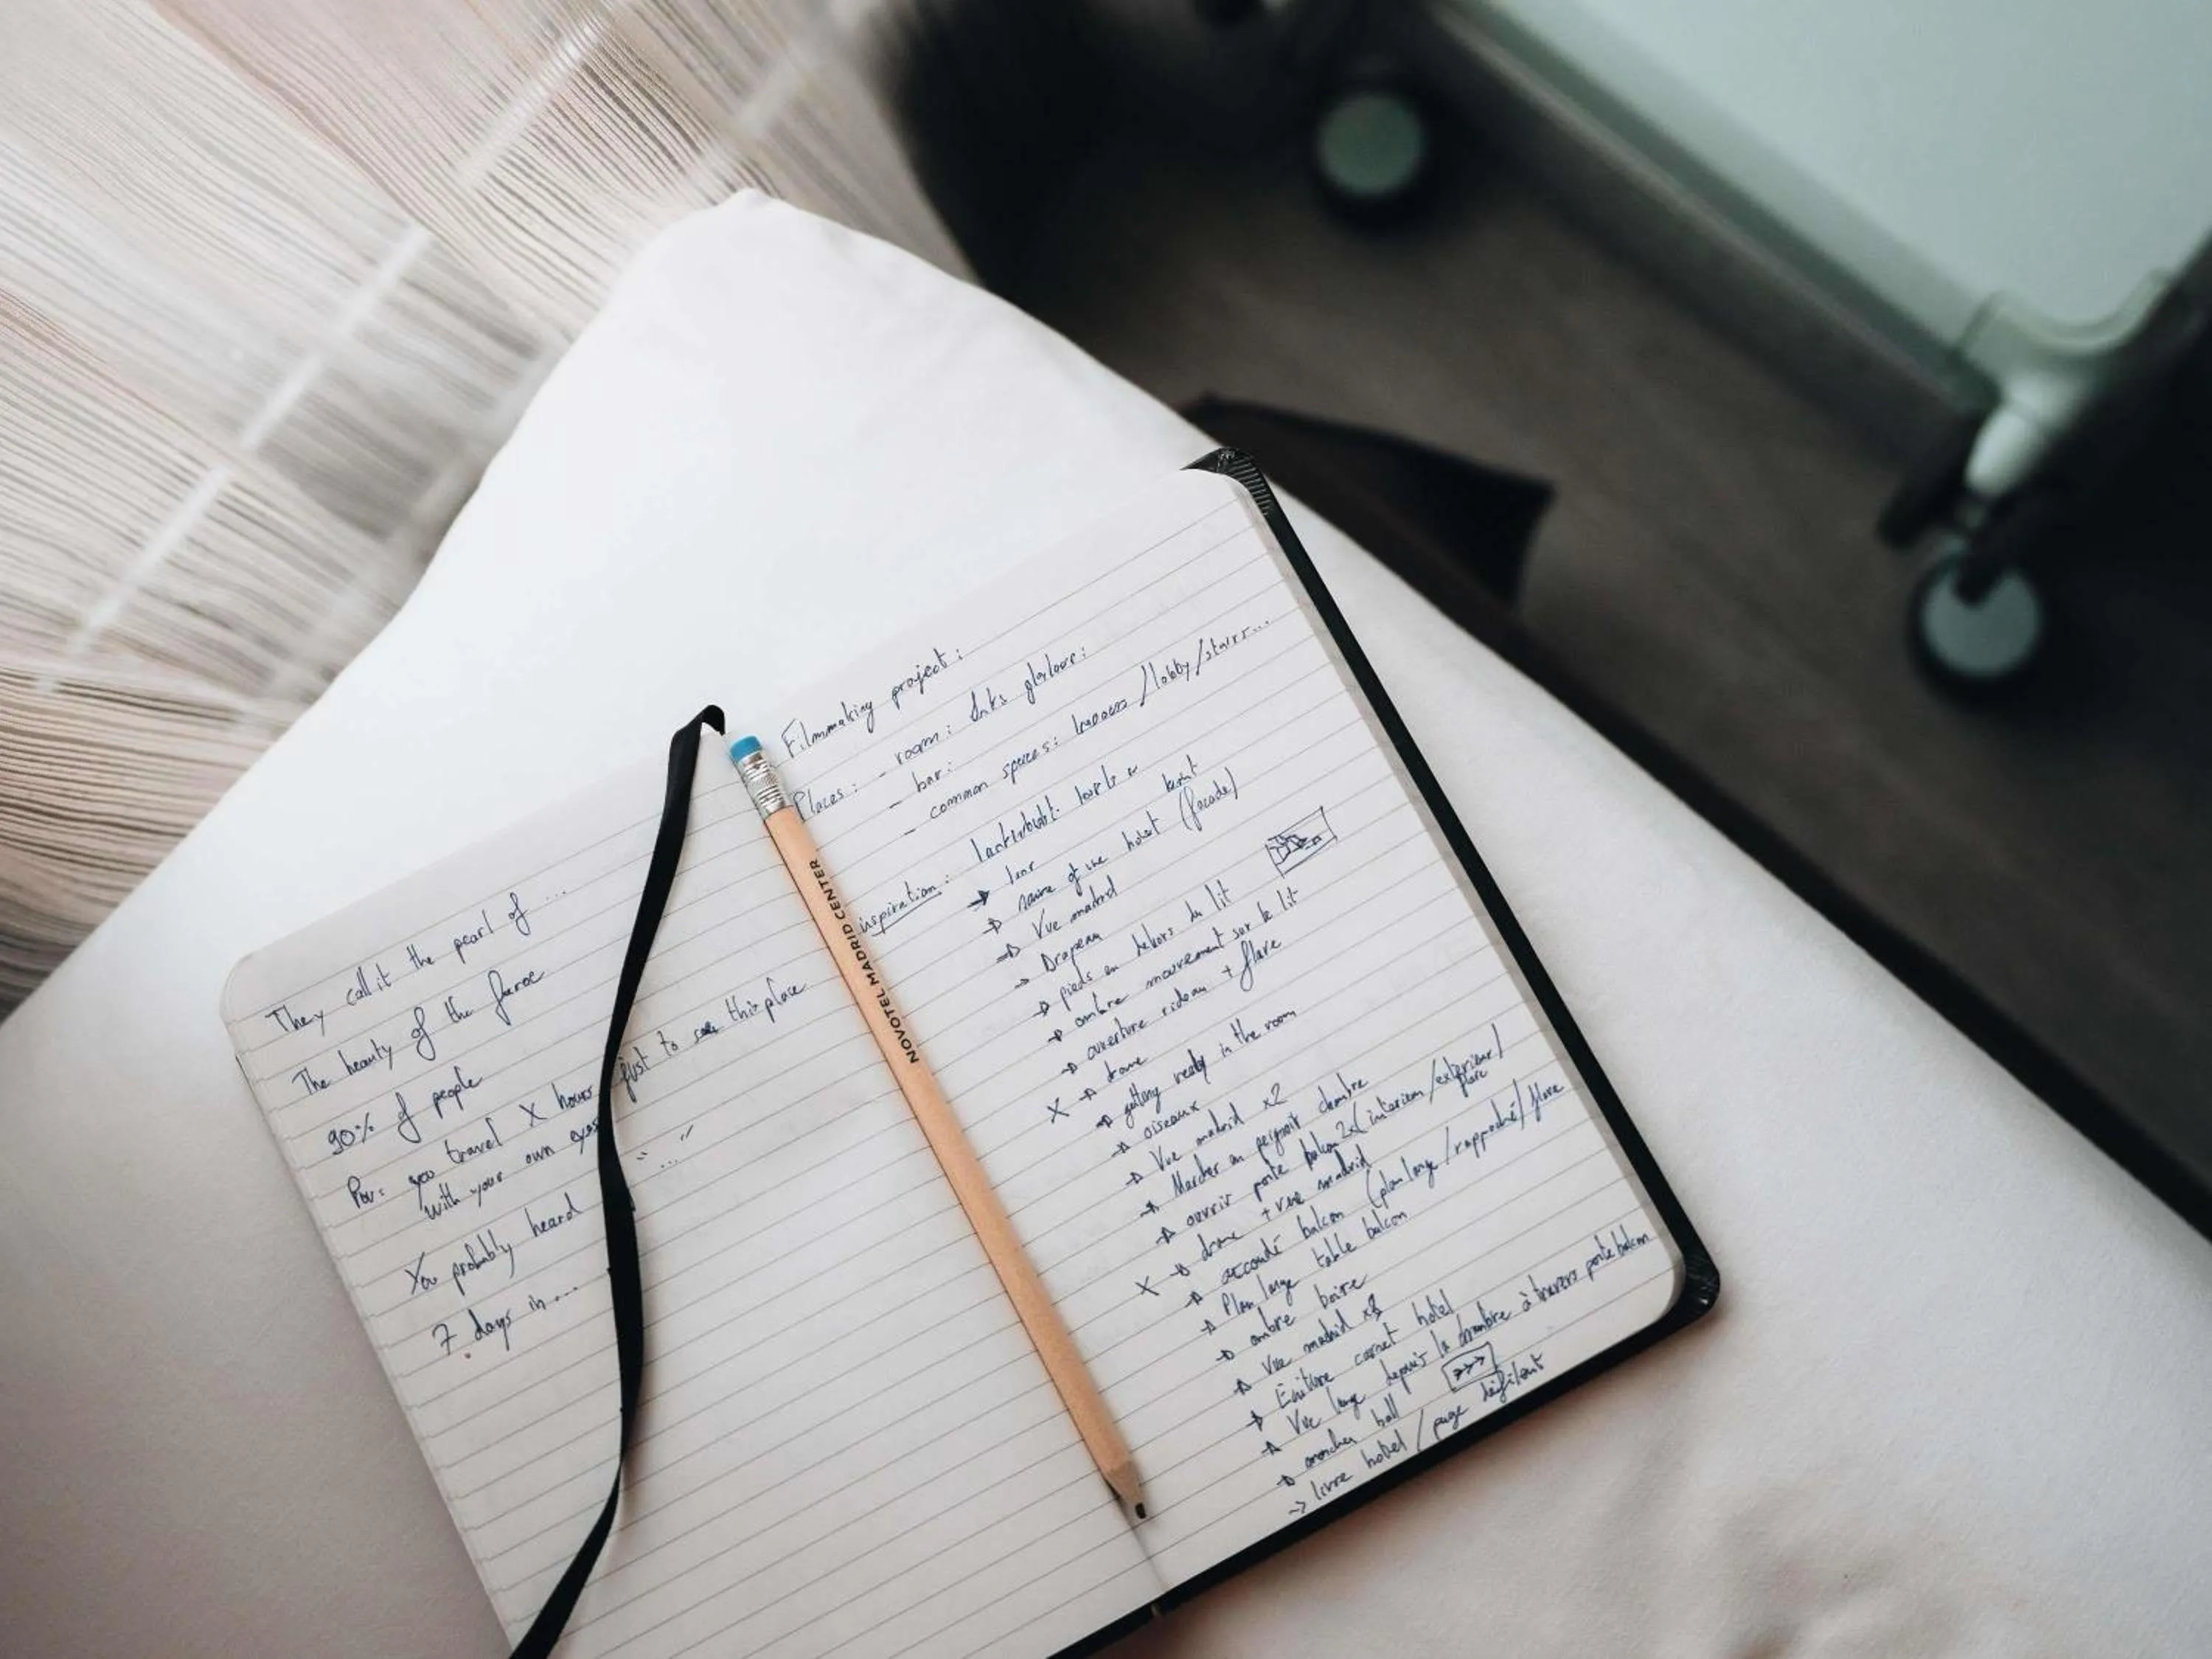 They call it the pearl of ...
The beauty of the faroe
90% of people
Pov: you travel X hours just to see this place
with your own eyes
You probably heard "..."
7 days in...
NOVOTEL MADRID CENTER
Filmmaking project:
Places: - room:
- bar:
- common spaces: /lobby/stairs...
inspiration:
→
→ name of the hotel (facade)
→ Vue madrid
→ Drapeau
→ pieds en dehors du lit
→ ombre mouvement sur le lit
→ ouverture rideau + flare
X → drone
→ getting ready in the room
→ oiseaux
→ Vue madrid x2
→ Marcher en peignoir chambre
→ ouvrir porte balcon 2x (interieur/exterieur)
flare
X → drone + vue madrid
→ accoudé balcon (plan large/rapproché/flare
→ Plan large table balcon
→ ombre boire
→ Vue madrid
→ Écriture carnet hotel
→ Vue large depuis la chambre à travers porte balcon
→ marcher hall
→ livre hotel / page défilent